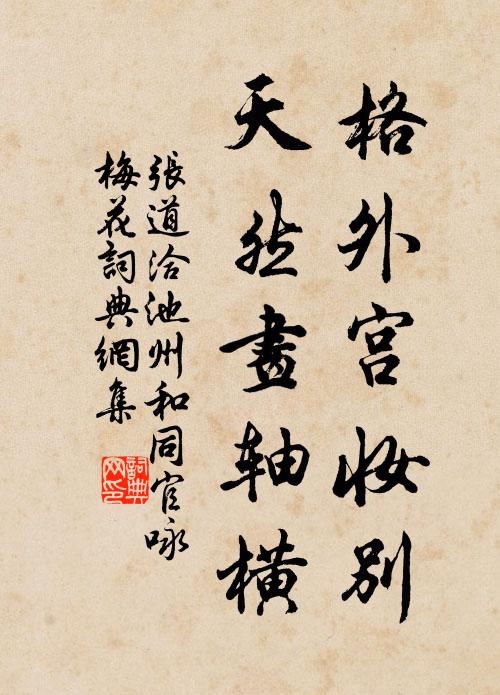 格外宫妆别
天然畫軸橫
張道洽池州和同官咏
梅花詞典網集
詞典网印